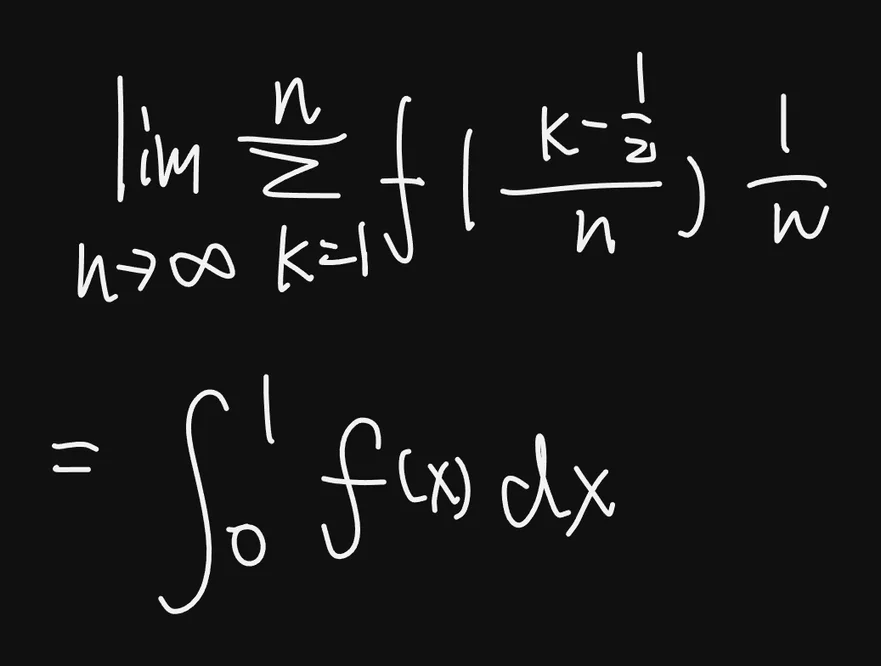 \lim_{n \to \infty} \sum_{k=1}^{n} f\left(\frac{k-\frac{1}{2}}{n}\right) \frac{1}{n}
= \int_{0}^{1} f(x) \, dx